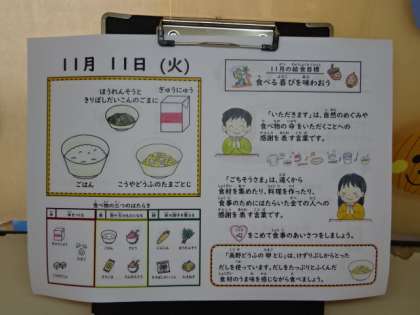 11月 11日 (火)
ほうれんそうと
きりぼしだいこんのごまに
ぎゅうにゅう
ごはん
こうやどうふのたまごとじ
食べ物の三つのはたらき
11月の給食目標
食べる喜びを味わおう
「いただきます」は、自然のめぐみや
食べ物の命をいただくことへの
感謝を表す言葉です。
「ごちそうさま」は、遠くから
食材を集めたり、料理を作ったり、
食事のためにはたらいた全ての人への
感謝を表す言葉です。
をこめて食事のあいさつをしましょう。
「高野どうふの卵とじ」は、けずりぶしからとった
だしを使っています。だしをたっぷりとふくんだ
食材のうま味を感じながら食べましょう。